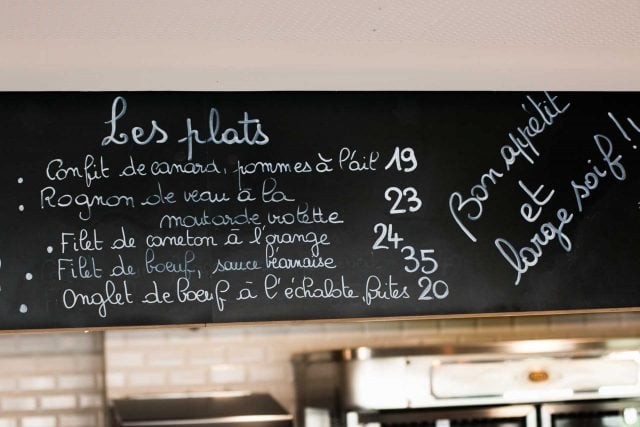 Les plats
. Confit de canard, pommes à l'ail 19
. Rognon de veau à la 23
moutarde violette
. Filet de caneton à l'orange 24
. Filet de boeuf, sauce béarnaise 35
. Onglet de boeuf à l'échalote, frites 20
Bon appétit
et
large soif !!